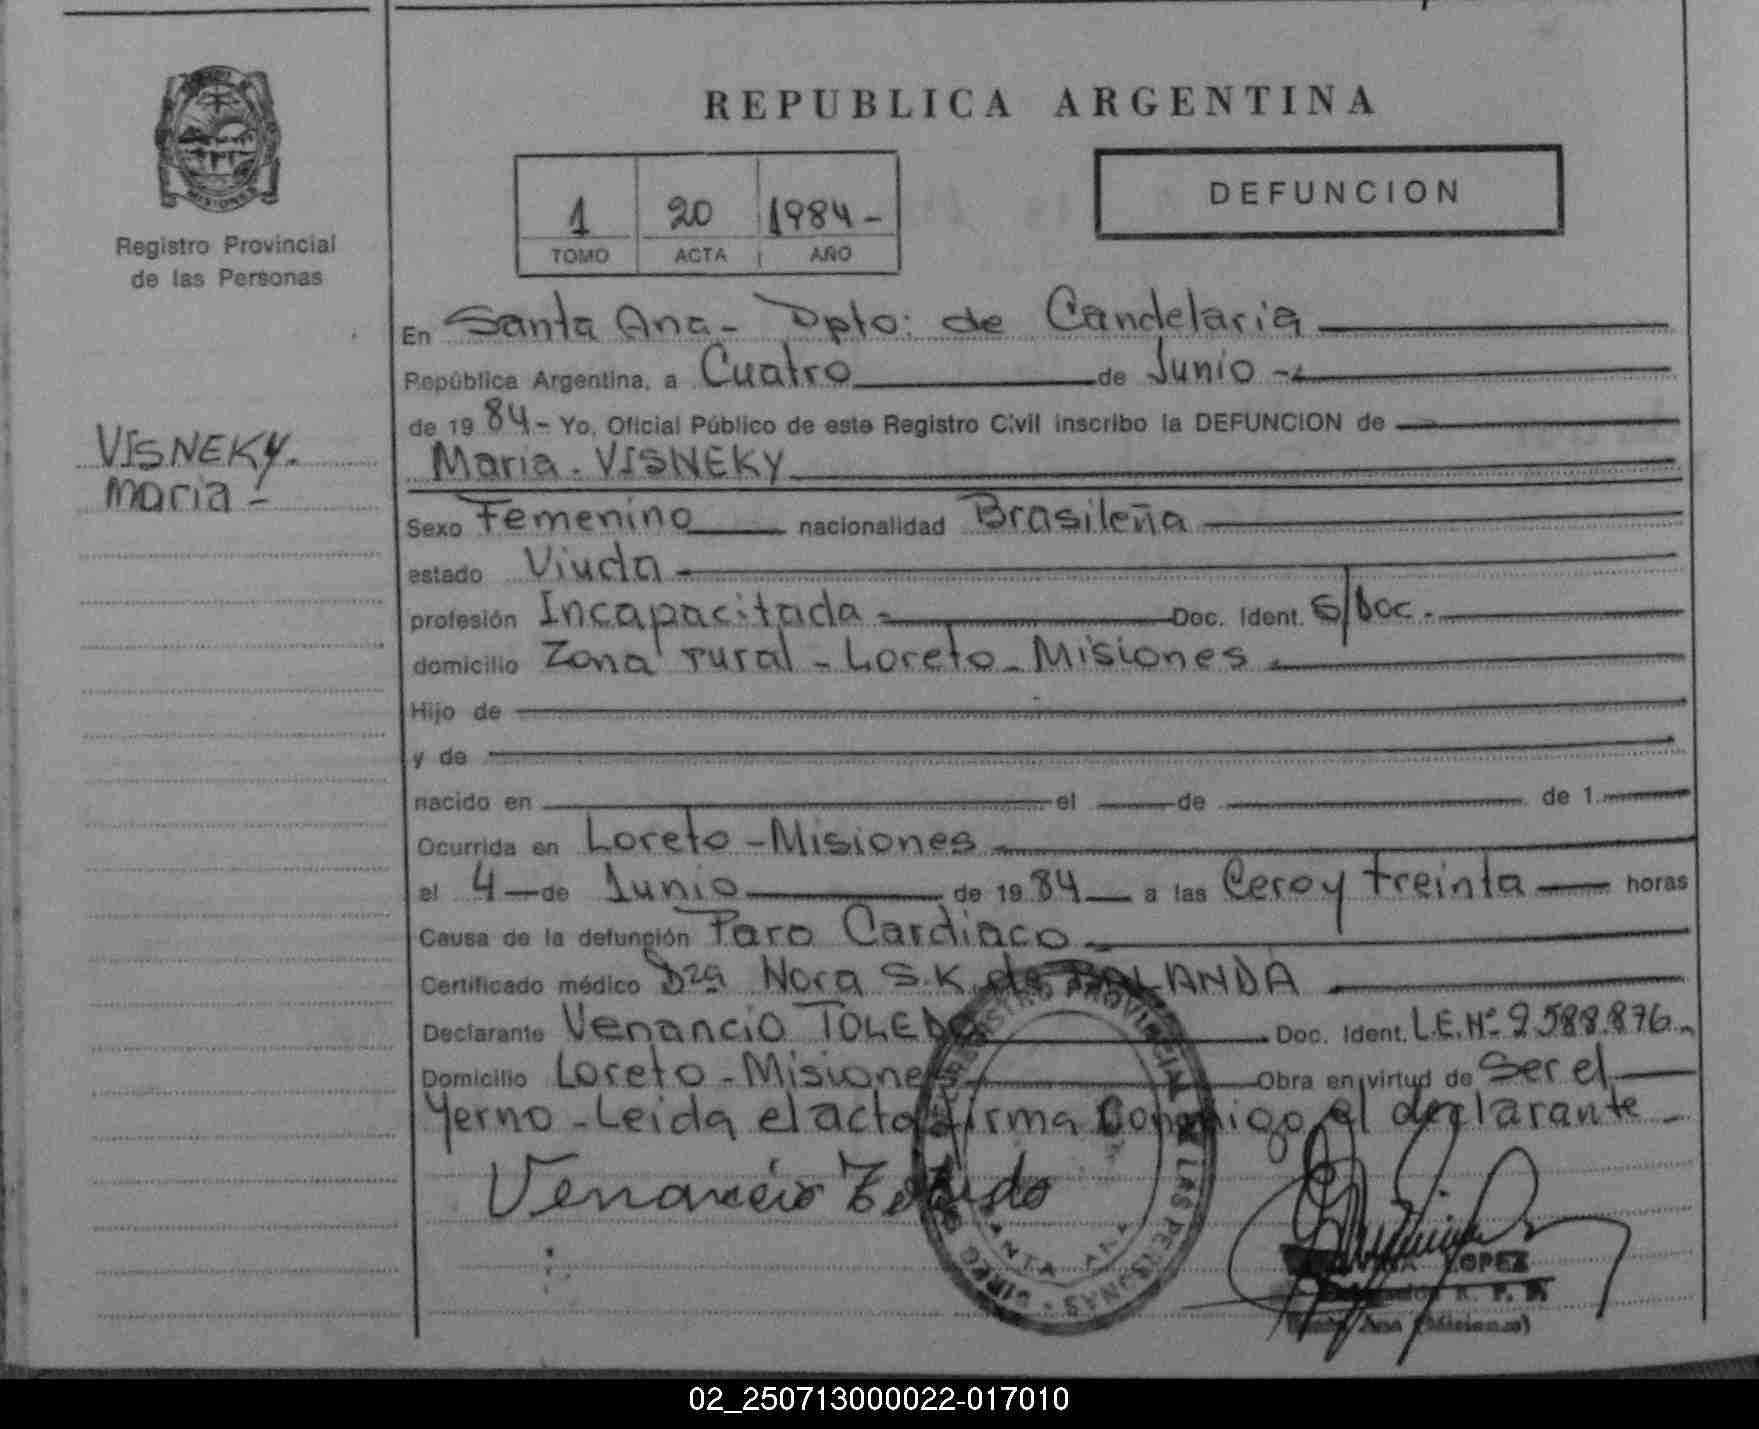 REPUBLICA ARGENTINA
DEFUNCION
1 20 1984-
TOMO ACTA AÑO
MISIONES
Registro Provincial
de las Personas
VISNEKY.
Maria-
En Santa Ana- Dpto: de Candelaria
República Argentina, a Cuatro de Junio -
de 19 84- Yo, Oficial Público de este Registro Civil inscribo la DEFUNCION de
Maria. VISNEKY
Sexo Femenino nacionalidad Brasileña
estado Viuda -
profesión Incapacitada - Doc. Ident. S/Doc.
domicilio Zona rural - Loreto - Misiones
Hijo de
y de
nacido en el de de 1.
Ocurrida en Loreto - Misiones
el 4 de Junio de 19 84 a las Cero y treinta horas
Causa de la defunción Paro Cardiaco
Certificado médico Dra Nora S.K. de BALANDA
Declarante Venancio TOLEDO Doc. Ident. L.E.Nº 2588.876
Domicilio Loreto - Misiones Obra en virtud de Ser el
Yerno - Leida el acta firma Conmigo el declarante -
Venancio Toledo
REGISTRO PROVINCIAL DE LAS PERSONAS
SANTA ANA
LOPEZ
R. P. P.
Santa Ana (Misiones)
02_250713000022-017010